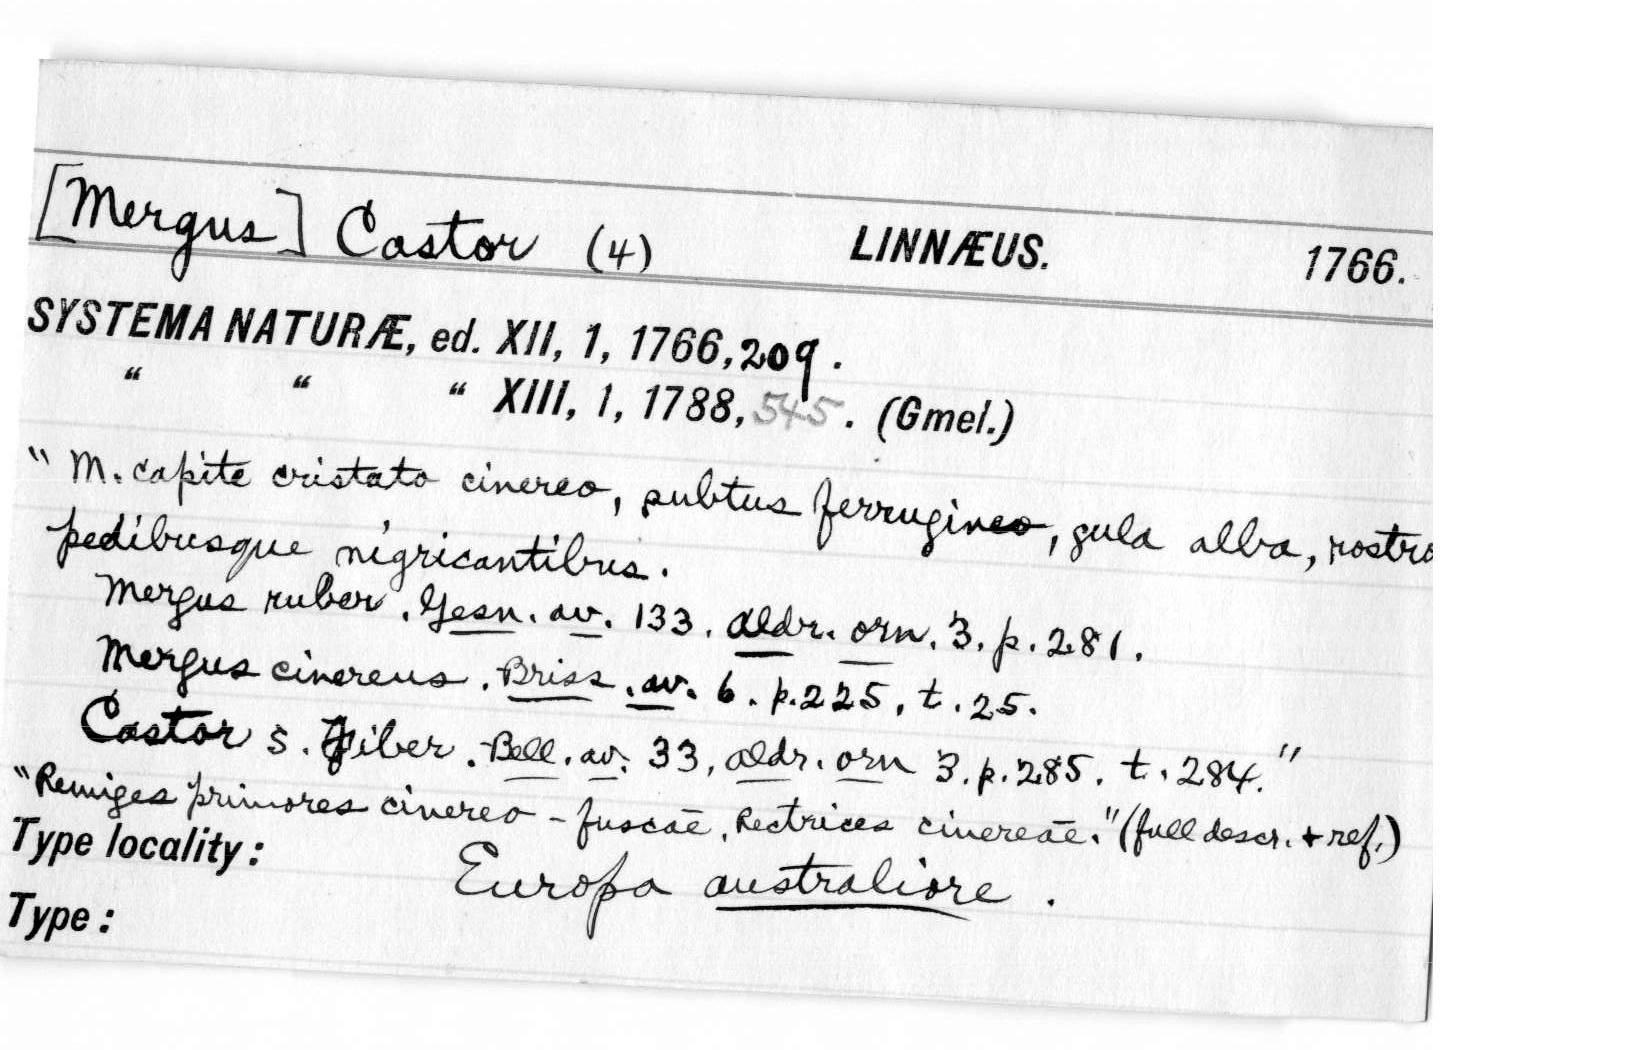 [Mergus] Castor (4) LINNÆUS. 1766.
SYSTEMA NATURÆ, ed. XII, 1, 1766, 209.
" " " XIII, 1, 1788, 545. (Gmel.)
"M. capite cristato cinereo, subtus ferrugineo, gula alba, rostro
pedibusque nigricantibus.
Mergus ruber. Gesn. av. 133. Aldr. orn. 3. p. 281.
Mergus cinereus. Briss. av. 6. p. 225. t. 25.
Castor s. Fiber. Bell. av. 33, Aldr. orn 3. p. 285. t. 284."
"Remiges primores cinereo-fuscae, Rectrices cinereae." (full descr. + ref.)
Type locality: Europa australiore.
Type: